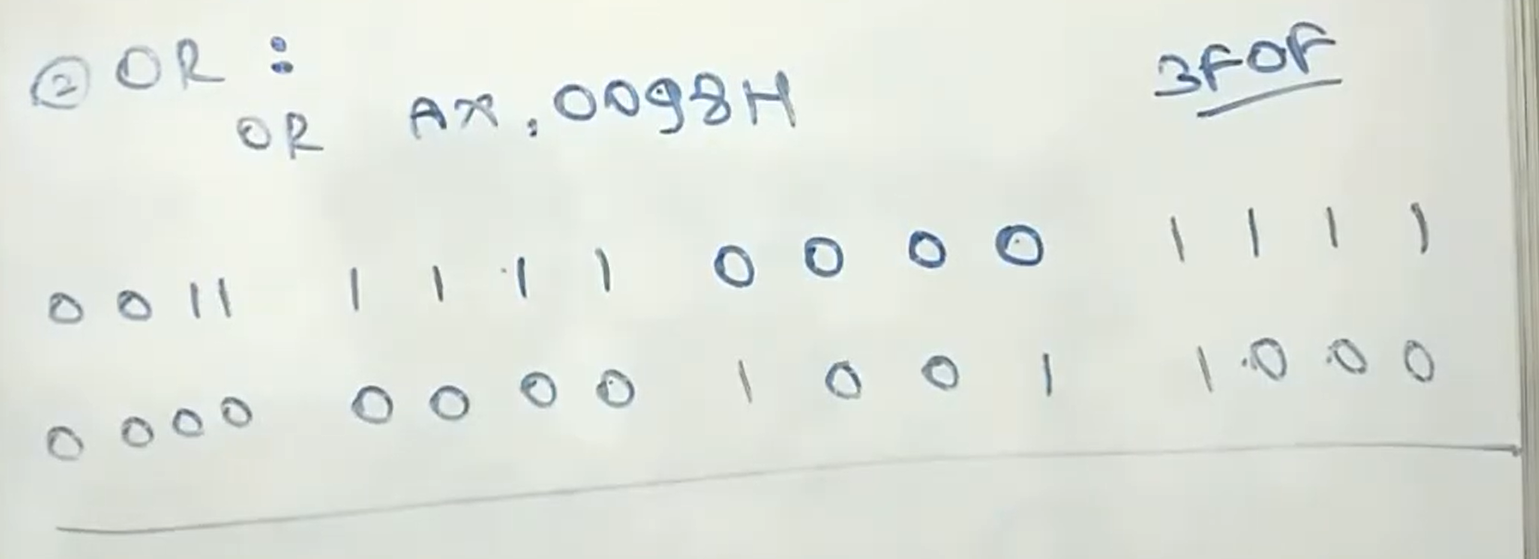 ② OR :
OR AX, 0098H 3F0F
0 0 1 1 1 1 1 1 0 0 0 0 1 1 1 1
0 0 0 0 0 0 0 0 1 0 0 1 1 0 0 0